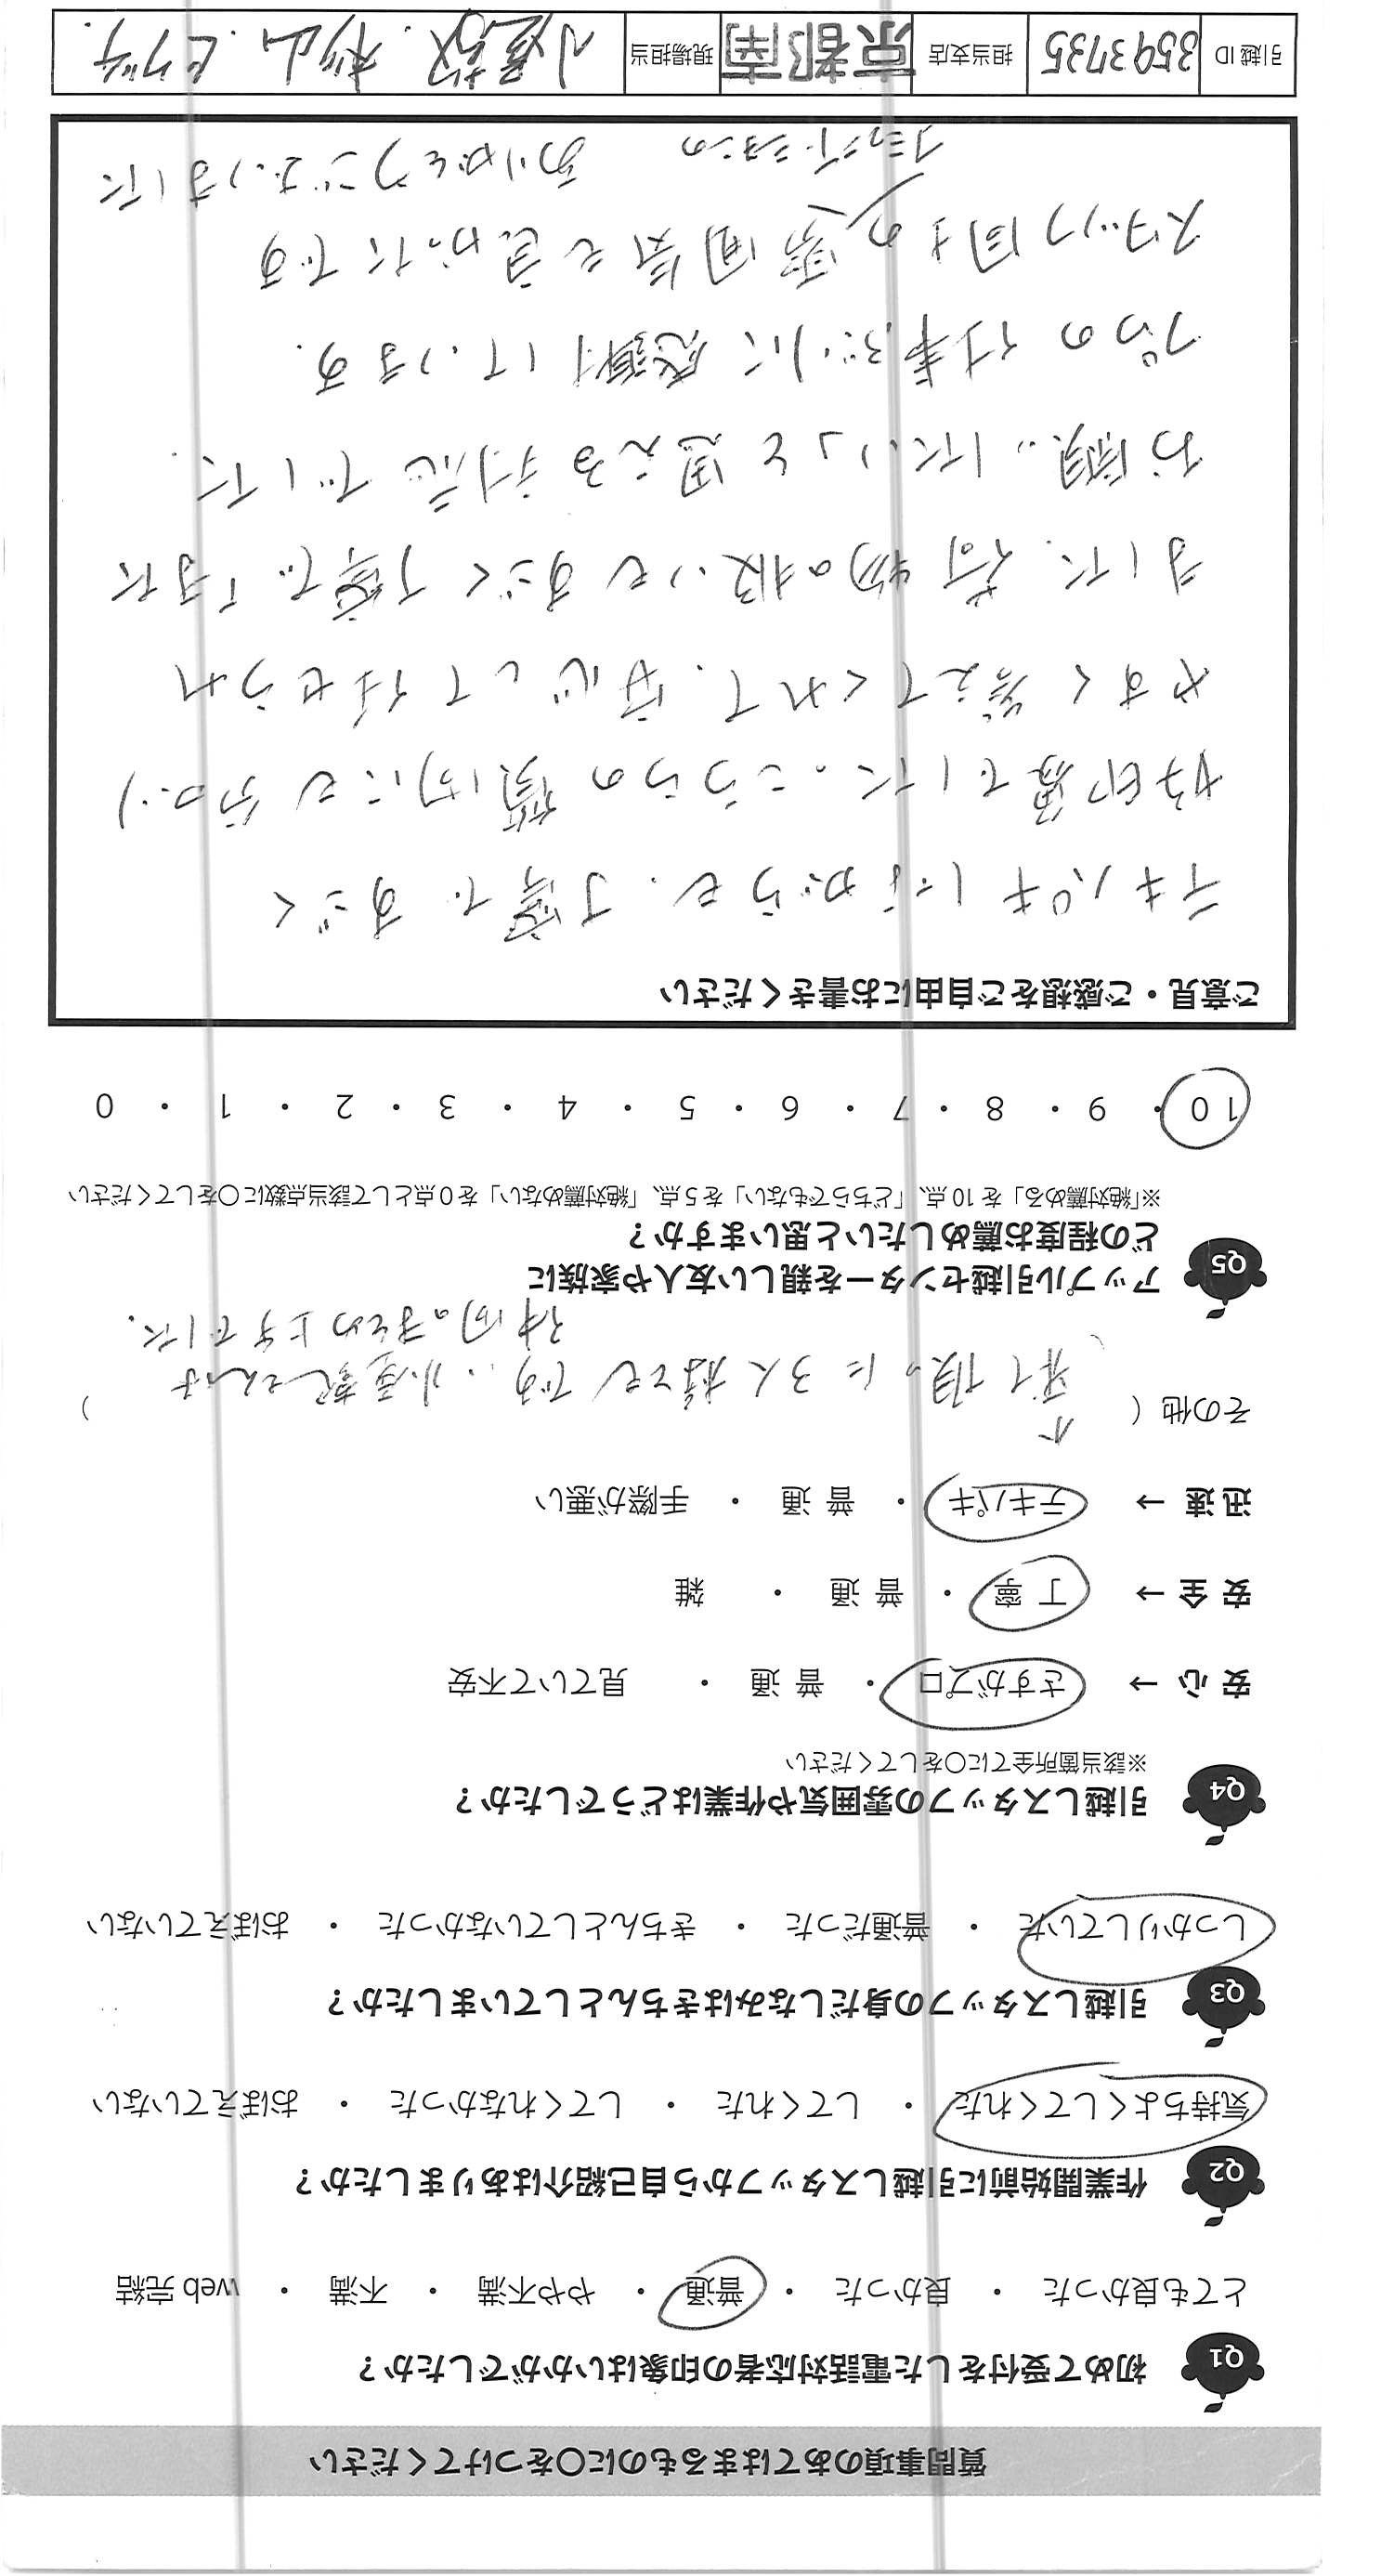 質問事項のあてはまるものに〇をつけてください
Q1 初めて受付をした電話対応者の印象はいかがでしたか？
とても良かった ・ 良かった ・ 普通 ・ やや不満 ・ 不満 ・ web 完結
Q2 作業開始前に引越しスタッフから自己紹介はありましたか？
気持ちよくしてくれた ・ してくれた ・ してくれなかった ・ おぼえていない
Q3 引越しスタッフの身だしなみはきちんとしていましたか？
しっかりしていた ・ 普通だった ・ きちんとしていなかった ・ おぼえていない
Q4 引越しスタッフの雰囲気や作業はどうでしたか？
※該当箇所全てに〇をしてください
安 心 → さすがプロ ・ 普 通 ・ 見ていて不安
安 全 → 丁 寧 ・ 普 通 ・ 雑
迅 速 → テキパキ ・ 普 通 ・ 手際が悪い
その他（ ）
に3人様ともです。小屋敷さんは
仲間のまとめ上手でした.
Q5 アップル引越センターを親しい友人や家族に
どの程度お薦めしたいと思いますか？
※「絶対薦める」を 10 点、「どちらでもない」を 5 点、「絶対薦めない」を 0 点として該当点数に〇をしてください
10 ・ 9 ・ 8 ・ 7 ・ 6 ・ 5 ・ 4 ・ 3 ・ 2 ・ 1 ・ 0
ご意見・ご感想をご自由にお書きください
テキパキしながらも、丁寧で すごく
好印象でした。こちらの質問にも分かり
やすく答えてくれて、安心して任せられ
ました. 荷物の扱いもすごく丁寧で「また
お願いしたい」と思える対応でした.
プロの仕事ぶりに感謝しています.
スタッフ同士の雰囲気も良かったです
コミュニケーションの ありがとうございました
引越 ID 3593735 担当支店 京都南 現場担当 小屋敷. 杉山. ヒワタ.